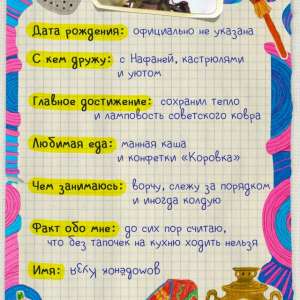 Дата рождения: официально не указана
С кем дружу: с Нафаней, кастрюлями
и уютом
Главное достижение: сохранил тепло
и ламповость советского ковра
Любимая еда: манная каша
и конфетки «Коровка»
Чем занимаюсь: ворчу, слежу за порядком
и иногда колдую
Факт обо мне: до сих пор считаю,
что без тапочек на кухню ходить нельзя
Имя: домовёнок Кузя